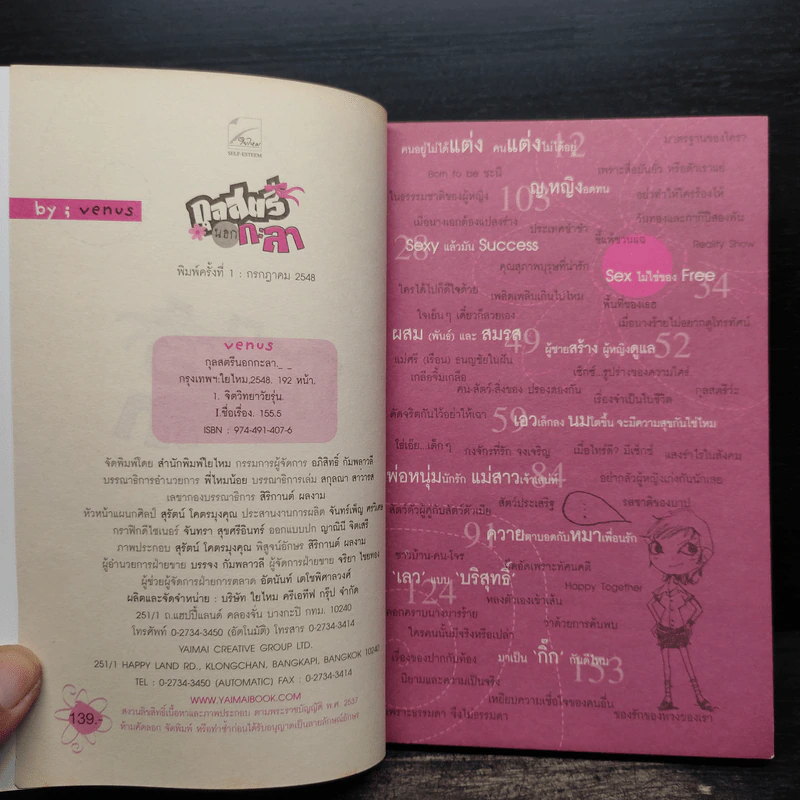 ใยไหม
SELF-ESTEEM
by ; venus
กุลสตรี
นอก
กะลา
พิมพ์ครั้งที่ 1 : กรกฎาคม 2548
venus
กุลสตรีนอกกะลา._ _
กรุงเทพฯ.ใยไหม.2548. 192 หน้า.
1. จิตวิทยาวัยรุ่น.
I.ชื่อเรื่อง. 155.5
ISBN : 974-491-407-6
จัดพิมพ์โดย สำนักพิมพ์ใยไหม กรรมการผู้จัดการ อภิสิทธิ์ กัมพลาวลี
บรรณาธิการอำนวยการ พี่ไหมน้อย บรรณาธิการเล่ม สกุลณา สาวารส
เลขากองบรรณาธิการ สิริกานต์ ผลงาม
หัวหน้าแผนกศิลป์ สุรัตน์ โคตรมุงคุณ ประสานงานการผลิต จันทร์เพ็ญ ศรวิเศษ
กราฟิกดีไซเนอร์ จันทรา สุขศรีอินทร์ ออกแบบปก ญาณินี จิตเสรี
ภาพประกอบ สุรัตน์ โคตรมุงคุณ พิสูจน์อักษร สิริกานต์ ผลงาม
ผู้อำนวยการฝ่ายขาย บรรจง กัมพลาวลี ผู้จัดการฝ่ายขาย จริยา ไชยทอง
ผู้ช่วยผู้จัดการฝ่ายการตลาด อัตนันท์ เตโชพิศาลวงศ์
ผลิตและจัดจำหน่าย : บริษัท ใยไหม ครีเอทีฟ กรุ๊ป จำกัด
251/1 ถ.แฮปปี้แลนด์ คลองจั่น บางกะปิ กทม. 10240
โทรศัพท์ 0-2734-3450 (อัตโนมัติ) โทรสาร 0-2734-3414
YAIMAI CREATIVE GROUP LTD.
251/1 HAPPY LAND RD., KLONGCHAN, BANGKAPI, BANGKOK 10240
TEL : 0-2734-3450 (AUTOMATIC) FAX : 0-2734-3414
WWW.YAIMAIBOOK.COM
139.-
สงวนลิขสิทธิ์เนื้อหาและภาพประกอบ ตามพระราชบัญญัติ พ.ศ. 2537
ห้ามคัดลอก จัดพิมพ์ หรือทำซ้ำก่อนได้รับอนุญาตเป็นลายลักษณ์อักษร
มาตรฐานของใครา
คนอยู่ไม่ได้แต่ง คนแต่งไม่ได้อยู่ 12
Born to be ชะนี เพราะดื่มยั่ว หรือตัวเราแย่
ในธรรมชาติของผู้หญิง 103 ญ.หญิงอดทน อย่าทำให้ใครร้องไห้
เมื่อนางเอกต้องแปลงร่าง ประเทศช้าช้า วันทองและกากีปีสองพัน
28 Sexy แล้วมัน Success Reality Show
คุณสุภาพบุรุษที่น่ารัก Sex ไม่ใช่ของ Free 34
ใครได้ไปก็ดีใจด้วย เพลิดเพลินเกินไปไหม พื้นที่ของเธอ
ใจเย็นๆ เดี๋ยวก็สวยเอง เมื่อนางร้ายไม่อยากดูโทรทัศน์
ผสม (พันธุ์) และ สมรส 49 ผู้ชายสร้าง ผู้หญิงดูแล 52
แม่ศรี (เรือน) ธนญชัยในฝัน
เกลือจิ้มเกลือ เซ็กซ์...รูปร่างของความใคร่
คน-สัตว์-สิ่งของ ปรองดองกัน กุลสตรีวะ
เรื่องจำเป็นในชีวิต
ดัดจริตกันไว้อย่าให้เฉา 59 เอวเล็กลง นมโตขึ้น จะมีความสุขกันใช่ไหม
ใช่เอ๊ย...เด็กๆ กงจักรที่รัก จงเจริญ เมื่อไหร่ดี? มีเซ็กซ์ แสงรำไรในสังคม
พ่อหนุ่มนักรัก แม่สาวเจ้าเล่ห์ 84 อย่ากลัวผู้หญิงเก่งกันนักเลย
สัตว์ประเสริฐ รสชาติของบาป
สัตว์ตัวผู้คู่กับสัตว์ตัวเมีย
91 ควายตาบอดกับหมาเพื่อนรัก
ชาวบ้าน-คน-โจร
'เลว' แบบ 'บริสุทธิ์' 124 Happy Together
หลงตัวเองเข้าเส้น
ดอกคราบนางมารร้าย ว่าด้วยการค้นพบ
ใครคนนั้นมีจริงหรือเปล่า
เรื่องของปากกับท้อง มาเป็น 'กิ๊ก' กันดีไหม 153
นิยามและความเป็นจริง
เหยียบความเชื่อใจของคนอื่น
เพราะธรรมดา จึงไม่ธรรมดา ของรักของหวงของเขา